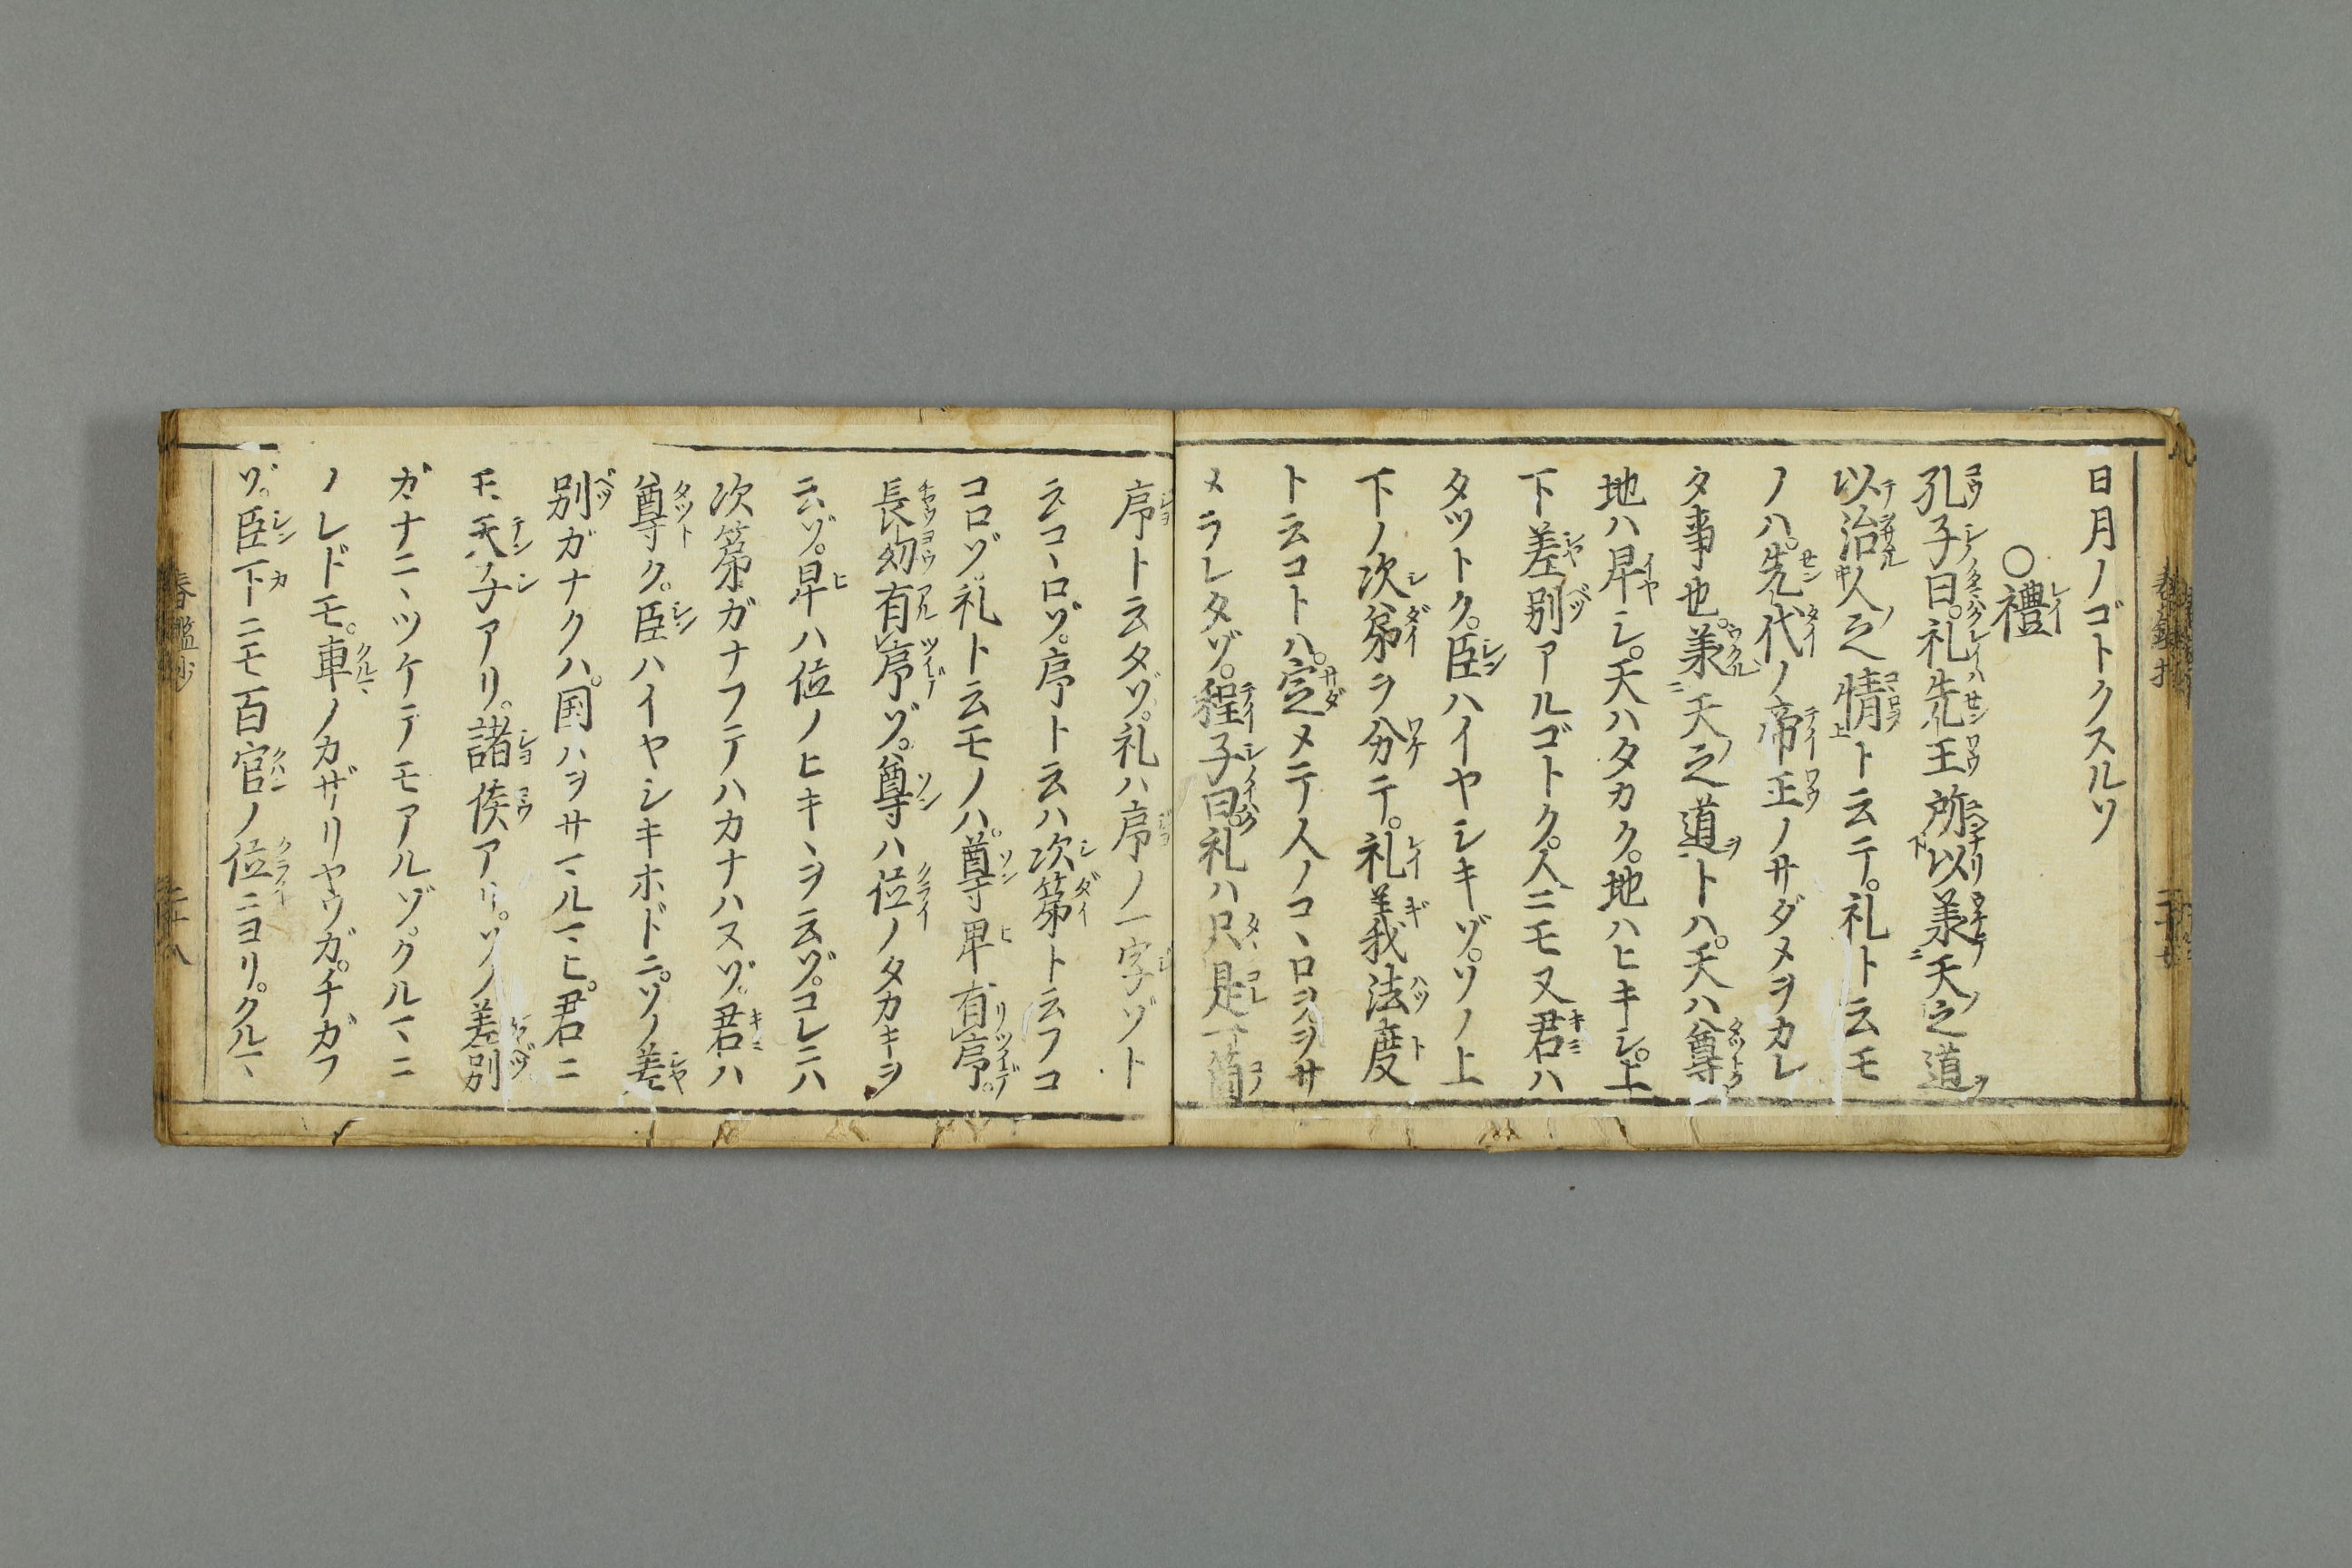 日月ノゴトクスルソ
〇禮
孔子曰。礼先王所以羕天之道
以治人之情ト云テ。礼ト云モ
ノハ。先代ノ帝王ノサダメヲカレ
タ事也。羕天之道トハ。天ハ尊
地ハ卑シ。天ハタカク。地ハヒキシ。上
下差別アルゴトク。人ニモ又君ハ
タツトク。臣ハイヤシキゾ。ソノ上
下ノ次第ヲ分テ。礼義法度
ト云コトハ。定メテ人ノコヽロヲヲサ
メラレタゾ。程子曰。礼ハ只是一箇
序ト云タゾ。礼ハ序ノ一字ゾト
云コヽロゾ。序ト云ハ次第ト云フコ
コロゾ。礼ト云モノハ。尊卑有序。
長幼有序ゾ。尊ハ位ノタカキヲ
云ゾ。卑ハ位ノヒキヽヲ云ゾ。コレニハ
次第ガナフテハカナハヌゾ。君ハ
尊ク。臣ハイヤシキホドニ。ソノ差
別ガナクハ。国ハヲサマルマヒ。君ニ
モ。天子アリ。諸侯アリ。ソノ差別
ガナニヽツケテモアルゾ。クルマヽニ
ノレドモ。車ノカザリヤウガ。チガフ
ゾ。臣下ニモ百官ノ位ニヨリ。クルマヽ
春鑑抄